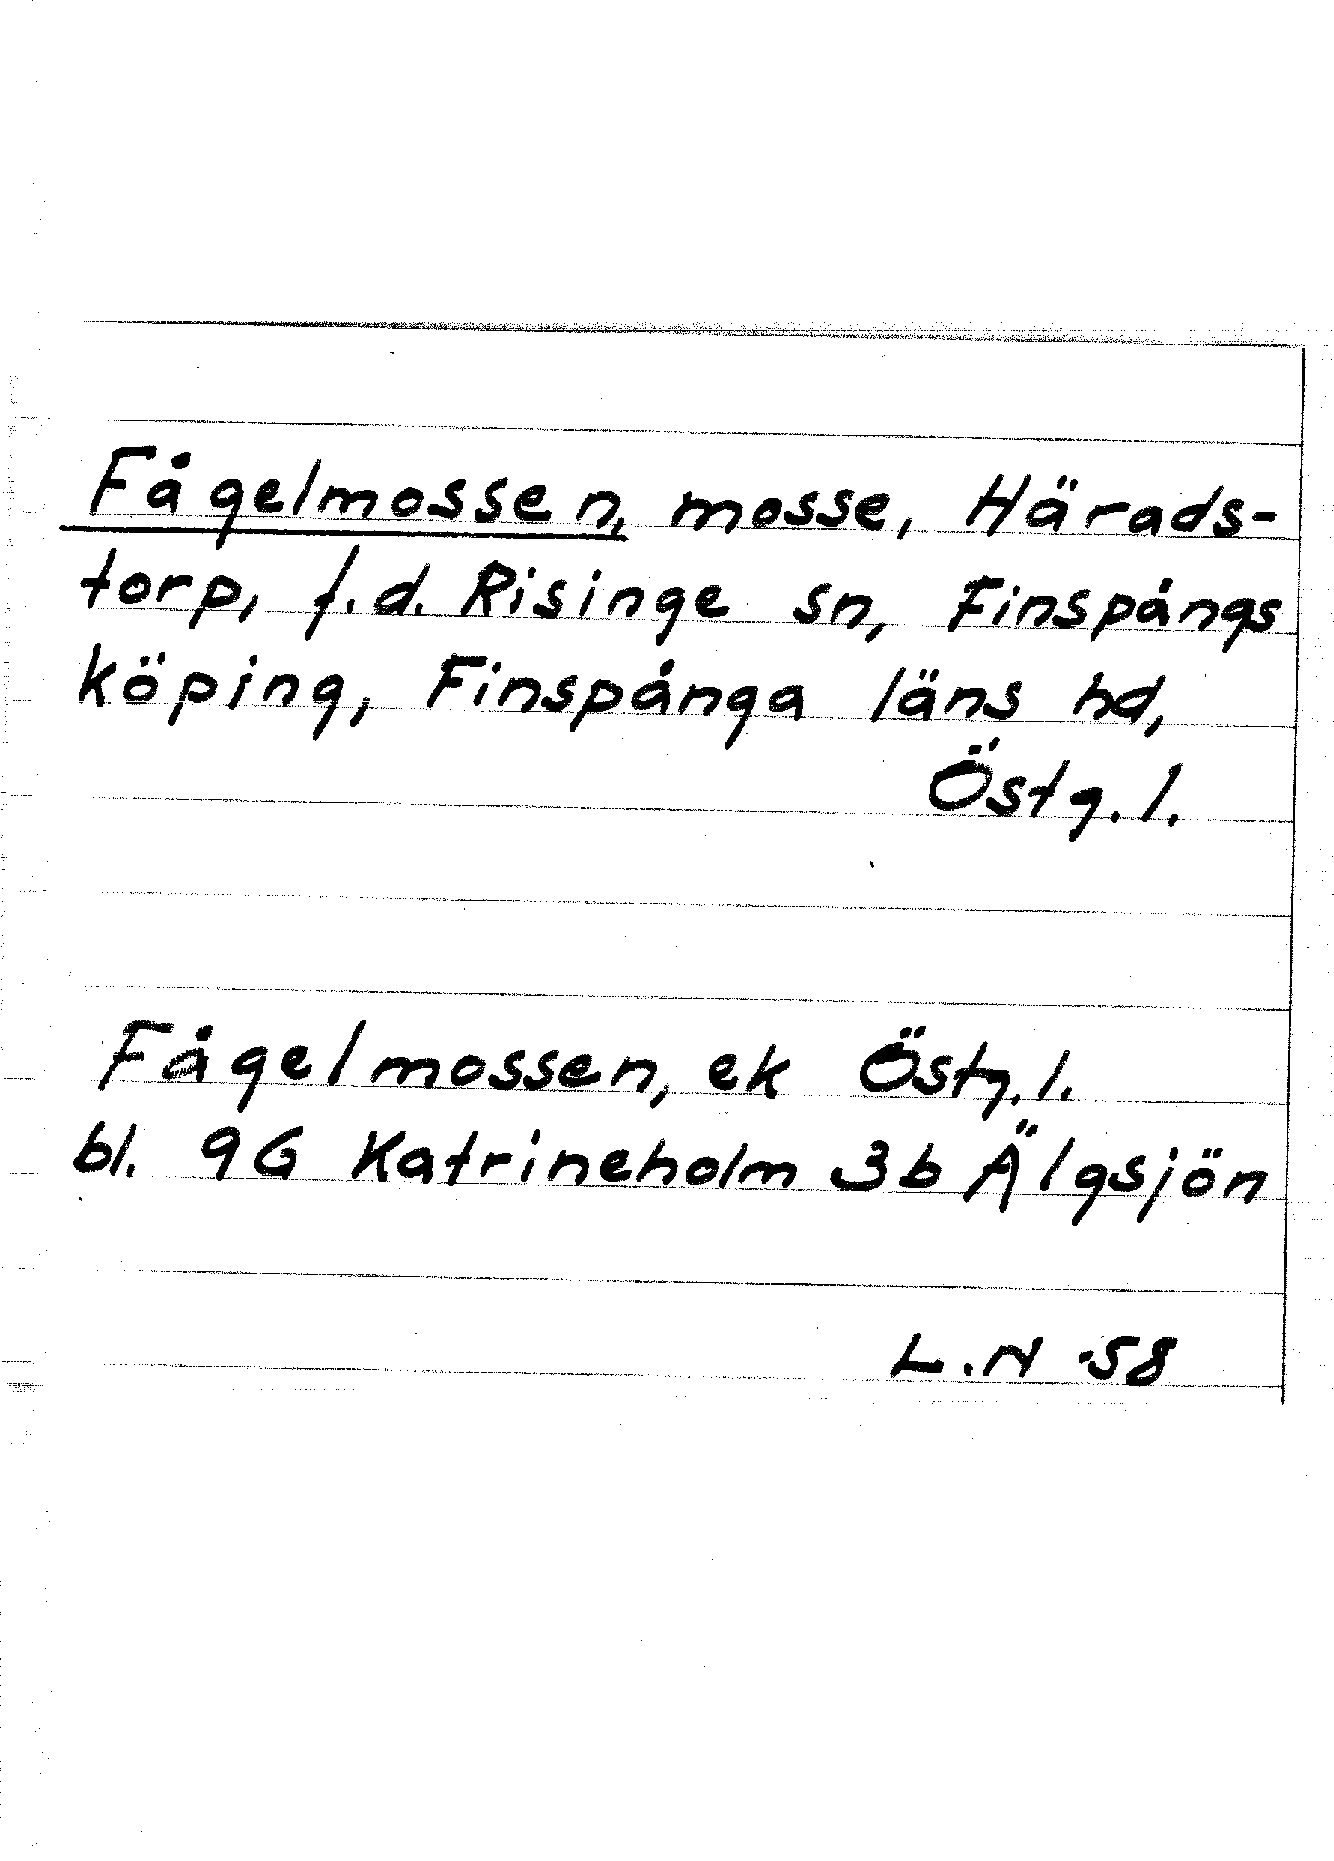 Fågelmossen, mosse, Härads-
torp, f.d. Risinge sn, Finspångs
köping, Finspånga läns hd,
Östg. l.
Fågelmossen, ek Östg. l.
bl. 9G Katrineholm 3b Älgsjön
L.N -58